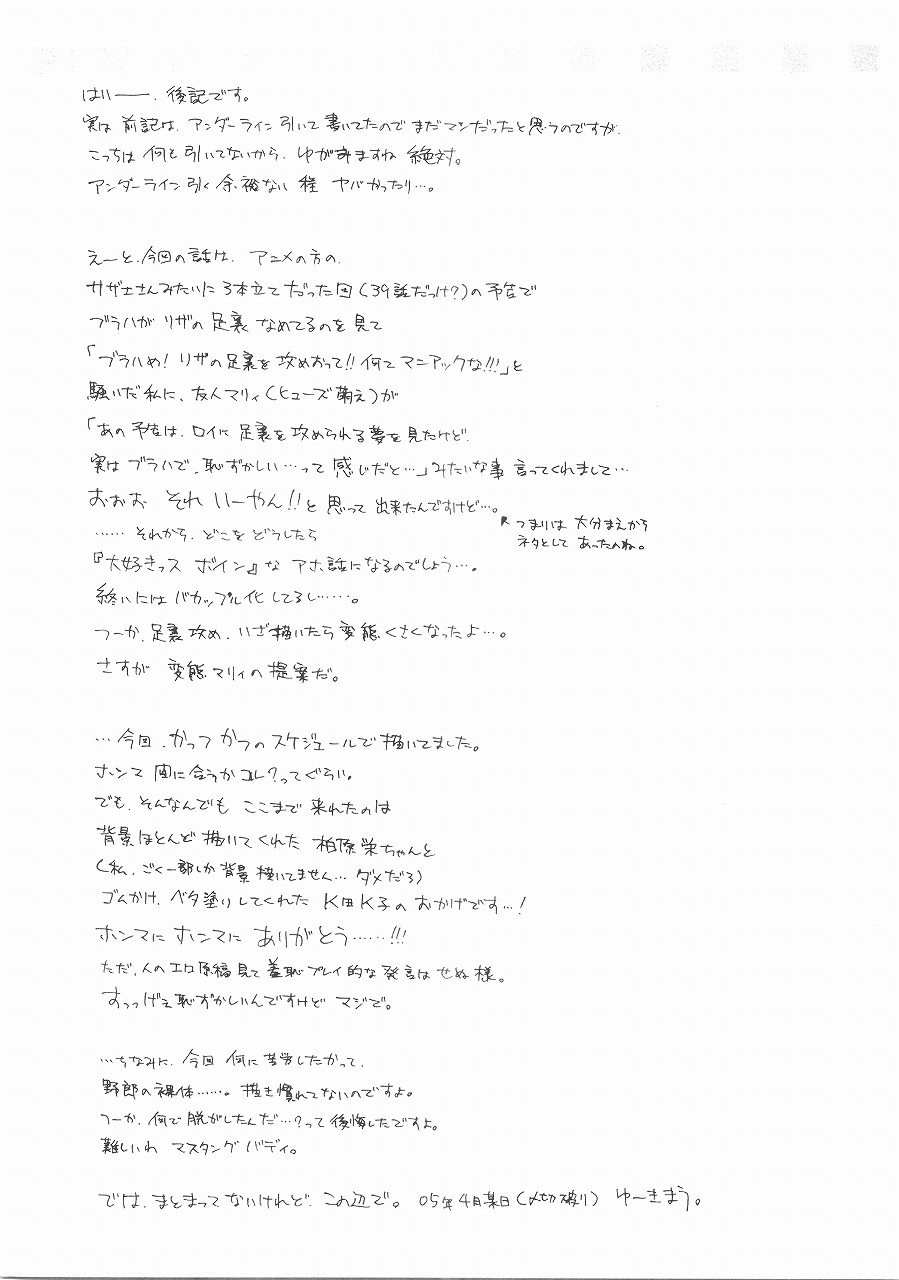 はいー――. 後記です。
実は 前記は、アンダーライン引いて書いてたのでまだマシだったと思うのですが.
こっちは何も引いてないから、ゆがみますね 絶対。
アンダーライン引く余裕ない 程 ヤバかったり…。
えーと、今回の話は、 アニメの方の、
サザエさんみたいに3本立てだった回(39話だっけ?)の予告で
ブラハがリザの足裏 なめてるのを見て
「ブラハめ!リザの足裏を攻めおって!!何てマニアックな!!!」と
騒いだ私に、友人マリィ(ヒューズ萌え)が
「あの予告は、ロイに足裏を攻められる夢を見たけど、
実はブラハで、恥ずかしい…って 感じだと…」みたいな事 言ってくれまして…
おぉぉ それ いーやん!!と思って 出来たんですけど…。
つまりは 大分まえから
ネタとして あったのね。
…… それから、どこを どうしたら
『大好きっス ボイン』な アホ話になるのでしょう…。
終いにはバカップル化してるし……。
つーか、足裏攻め、いざ描いたら変態くさくなったよ…。
さすが 変態マリィの提案だ。
…今回、かっつかつのスケジュールで描いてました。
ホンマ 間に合うかコレ?ってぐらい。
でも、そんなんでも ここまで来れたのは
背景ほとんど描いてくれた 柏原栄ちゃんと
(私、ごく一部しか背景描いてません… ダメだろ)
ゴムかけ、ベタ塗りしてくれた K田K子のおかげです…!
ホンマに ホンマに ありがとう……!!!
ただ、人のエロ原稿見て羞恥プレイ的な発言はせぬ様。
すっっげぇ恥ずかしいんですけど マジで。
…ちなみに、今回 何に苦労したかって、
野郎の裸体……。描き慣れてないのですよ。
つーか、何で脱がしたんだ…?って後悔したですよ。
難しいわ マスタングバディ。
では、まとまってないけれど、この辺で。 05年4月某日(〆切破り) ゆーきまう。